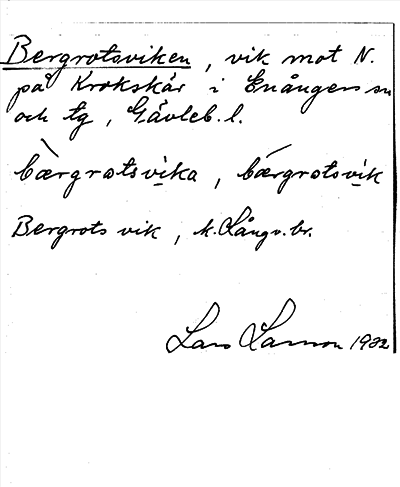 Bergrotsviken, vik mot N.
på Krokskär i Enångers sn
och tg, Gävleb. l.
bærgrotsvika, bærgrotsvik
Bergrots vik, k. Långv. br.
Lars Larson 1932